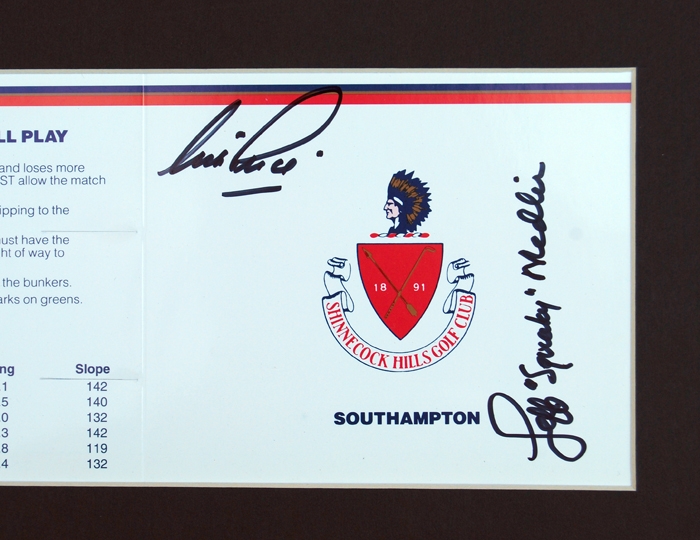 LL PLAY
and loses more
ST allow the match
ipping to the
ust have the
ht of way to
the bunkers.
arks on greens.
ng Slope
.1 142
.5 140
.0 132
.3 142
.8 119
.4 132
18 91
SHINNECOCK HILLS GOLF CLUB
SOUTHAMPTON
Jeff "Squeaky" Medlin